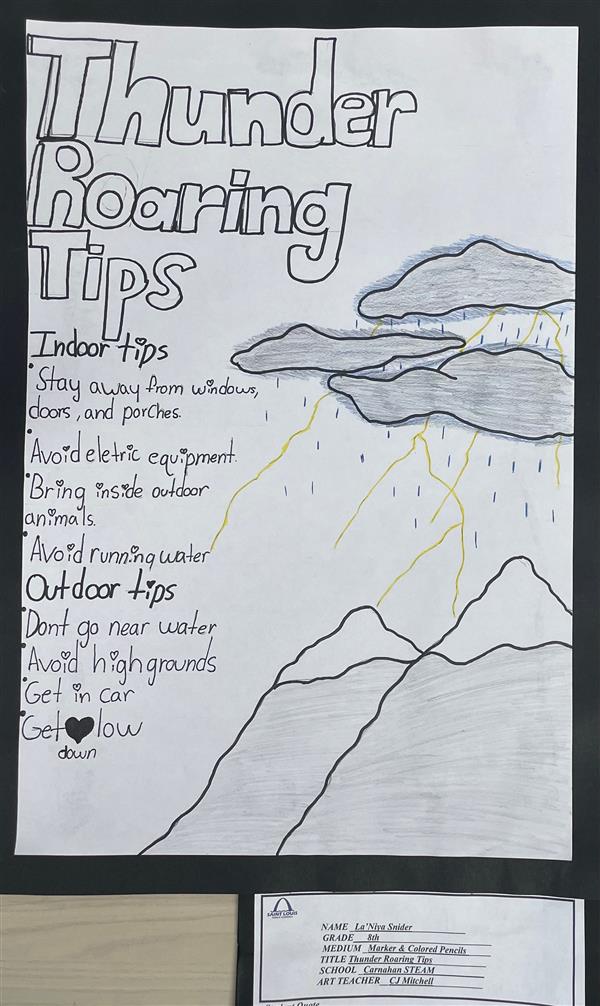 Thunder
Roaring
Tips
Indoor tips
• Stay away from windows,
doors, and porches.
• Avoid eletric equipment.
• Bring inside outdoor
animals.
• Avoid running water
Outdoor tips
• Dont go near water
• Avoid high grounds
• Get in car
• Get low
down
SAINT LOUIS
NAME La'Niya Snider
GRADE 8th
MEDIUM Marker & Colored Pencils
TITLE Thunder Roaring Tips
SCHOOL Carnahan STEAM
ART TEACHER CJ Mitchell